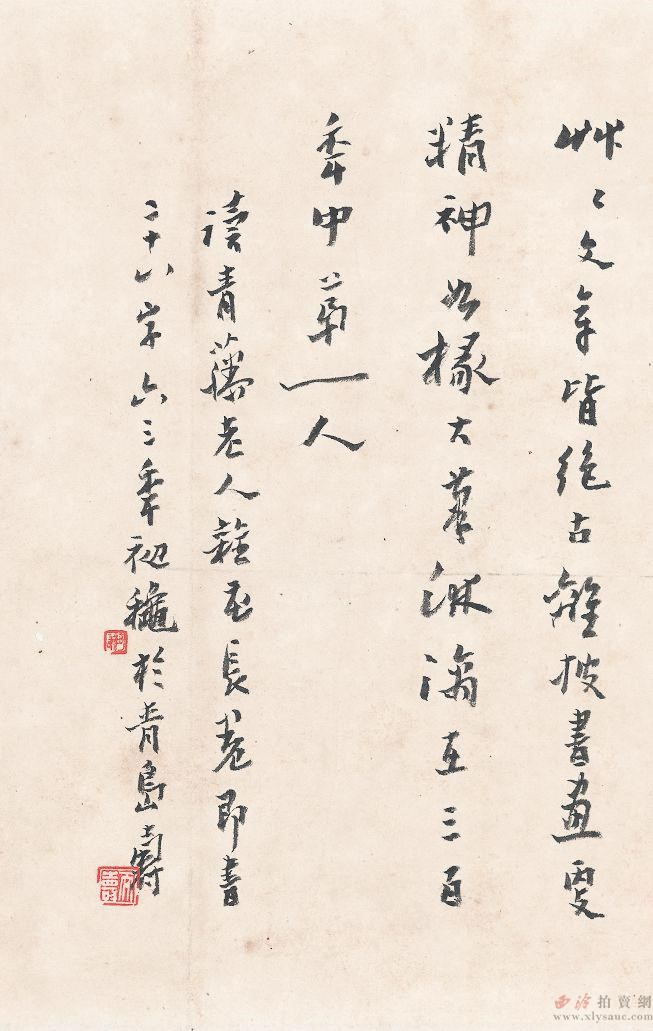 艸艸文章皆絕古離披書畫㪅
精神如椽大筆淋漓在三百
年中第一人
讀青藤老人雜花長卷即書
二十八字六三年初龝於青島壽
西泠拍賣網
www.xlysauc.com